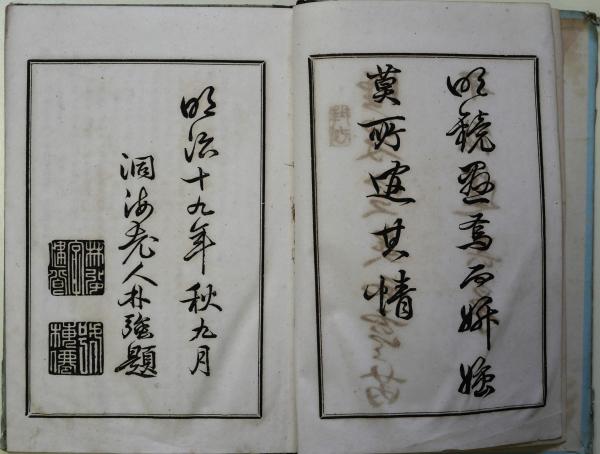 明鏡懸焉而妍媸
莫所遁其情
明治十九年秋九月
洞海老人林強題